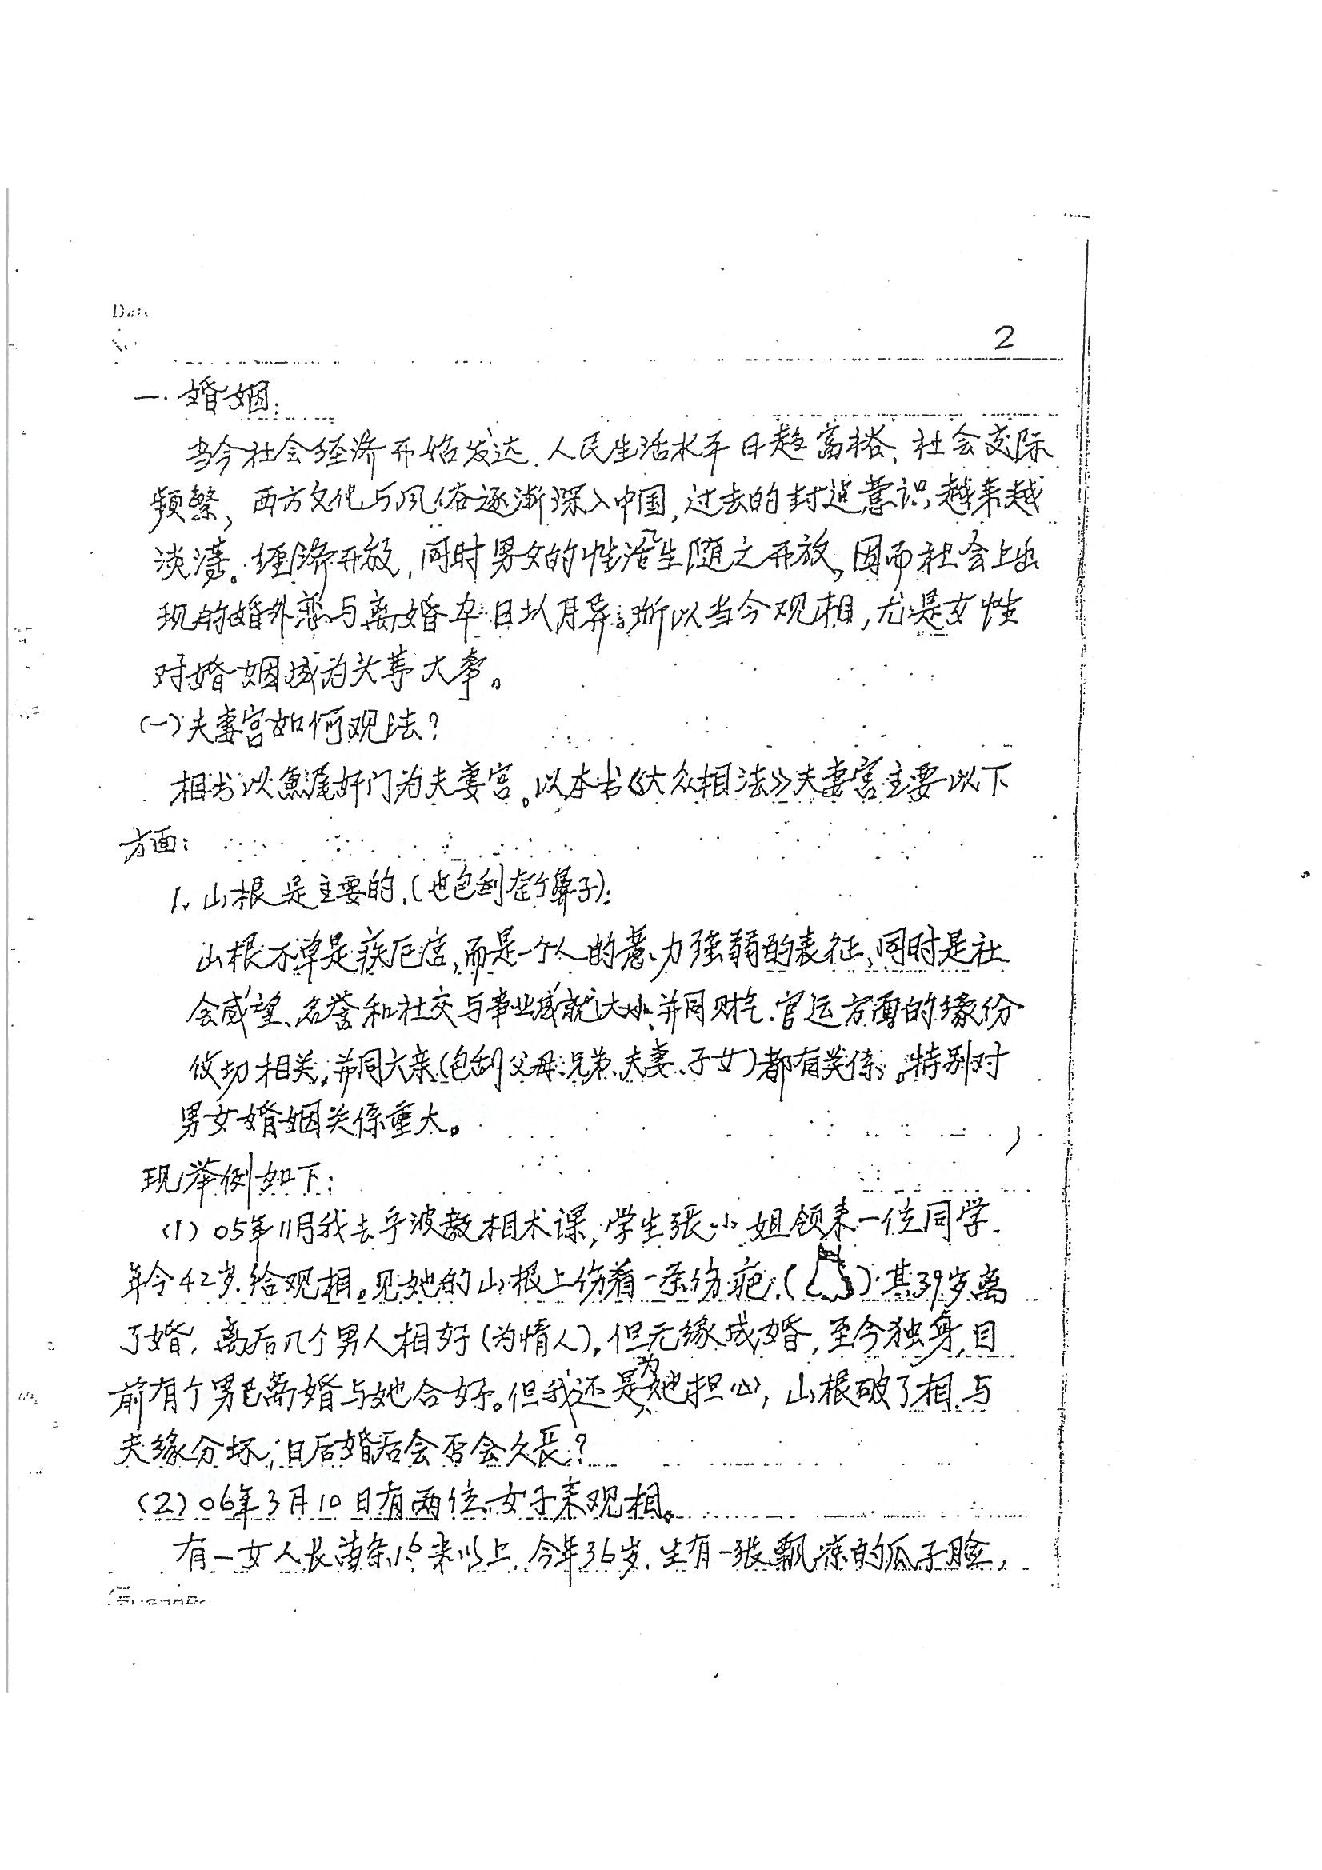 Date
No.
2
一.婚姻:
当今社会经济开始发达.人民生活水平日趋富裕、社会交际
频繁,西方文化与风俗逐渐深入中国,过去的封建意识越来越
淡薄。经济开放,同时男女的性活生随之开放,因而社会上出
现的婚外恋与离婚率日以月异,所以当今观相,尤是女性
对婚姻域为头等大事。
(一)夫妻宫如何观法?
相书以鱼尾奸门为夫妻宫。以本书《大众相法》夫妻宫主要以下
方面:
1.山根是主要的.(也包刮在个鼻子):
山根不单是疾厄宫,而是一个人的意力强弱的表征,同时是社
会威望、名誉和社交与事业成就大小,并同财气.官运方面的缘份
攸切相关,并同六亲(包刮父母、兄弟、夫妻、子女)都有关係。特别对
男女婚姻关係重大。
现举例如下:
(1)05年11月我去宁波教相术课,学生张小姐领来一位同学.
年令42岁.给观相。见她的山根上伤着一条伤疤,()其39岁离
了婚,离后几个男人相好(为情人),但无缘成婚,至今独身,目
前有个男已离婚与她合好。但我还是为她担心,山根破了相,与
夫缘分坏,日后婚后会否会久长?
(2)06年3月10日有两位女子来观相。
有一女人长苗条1.6米以上.今年36岁.生有一张飘凉的瓜子脸,